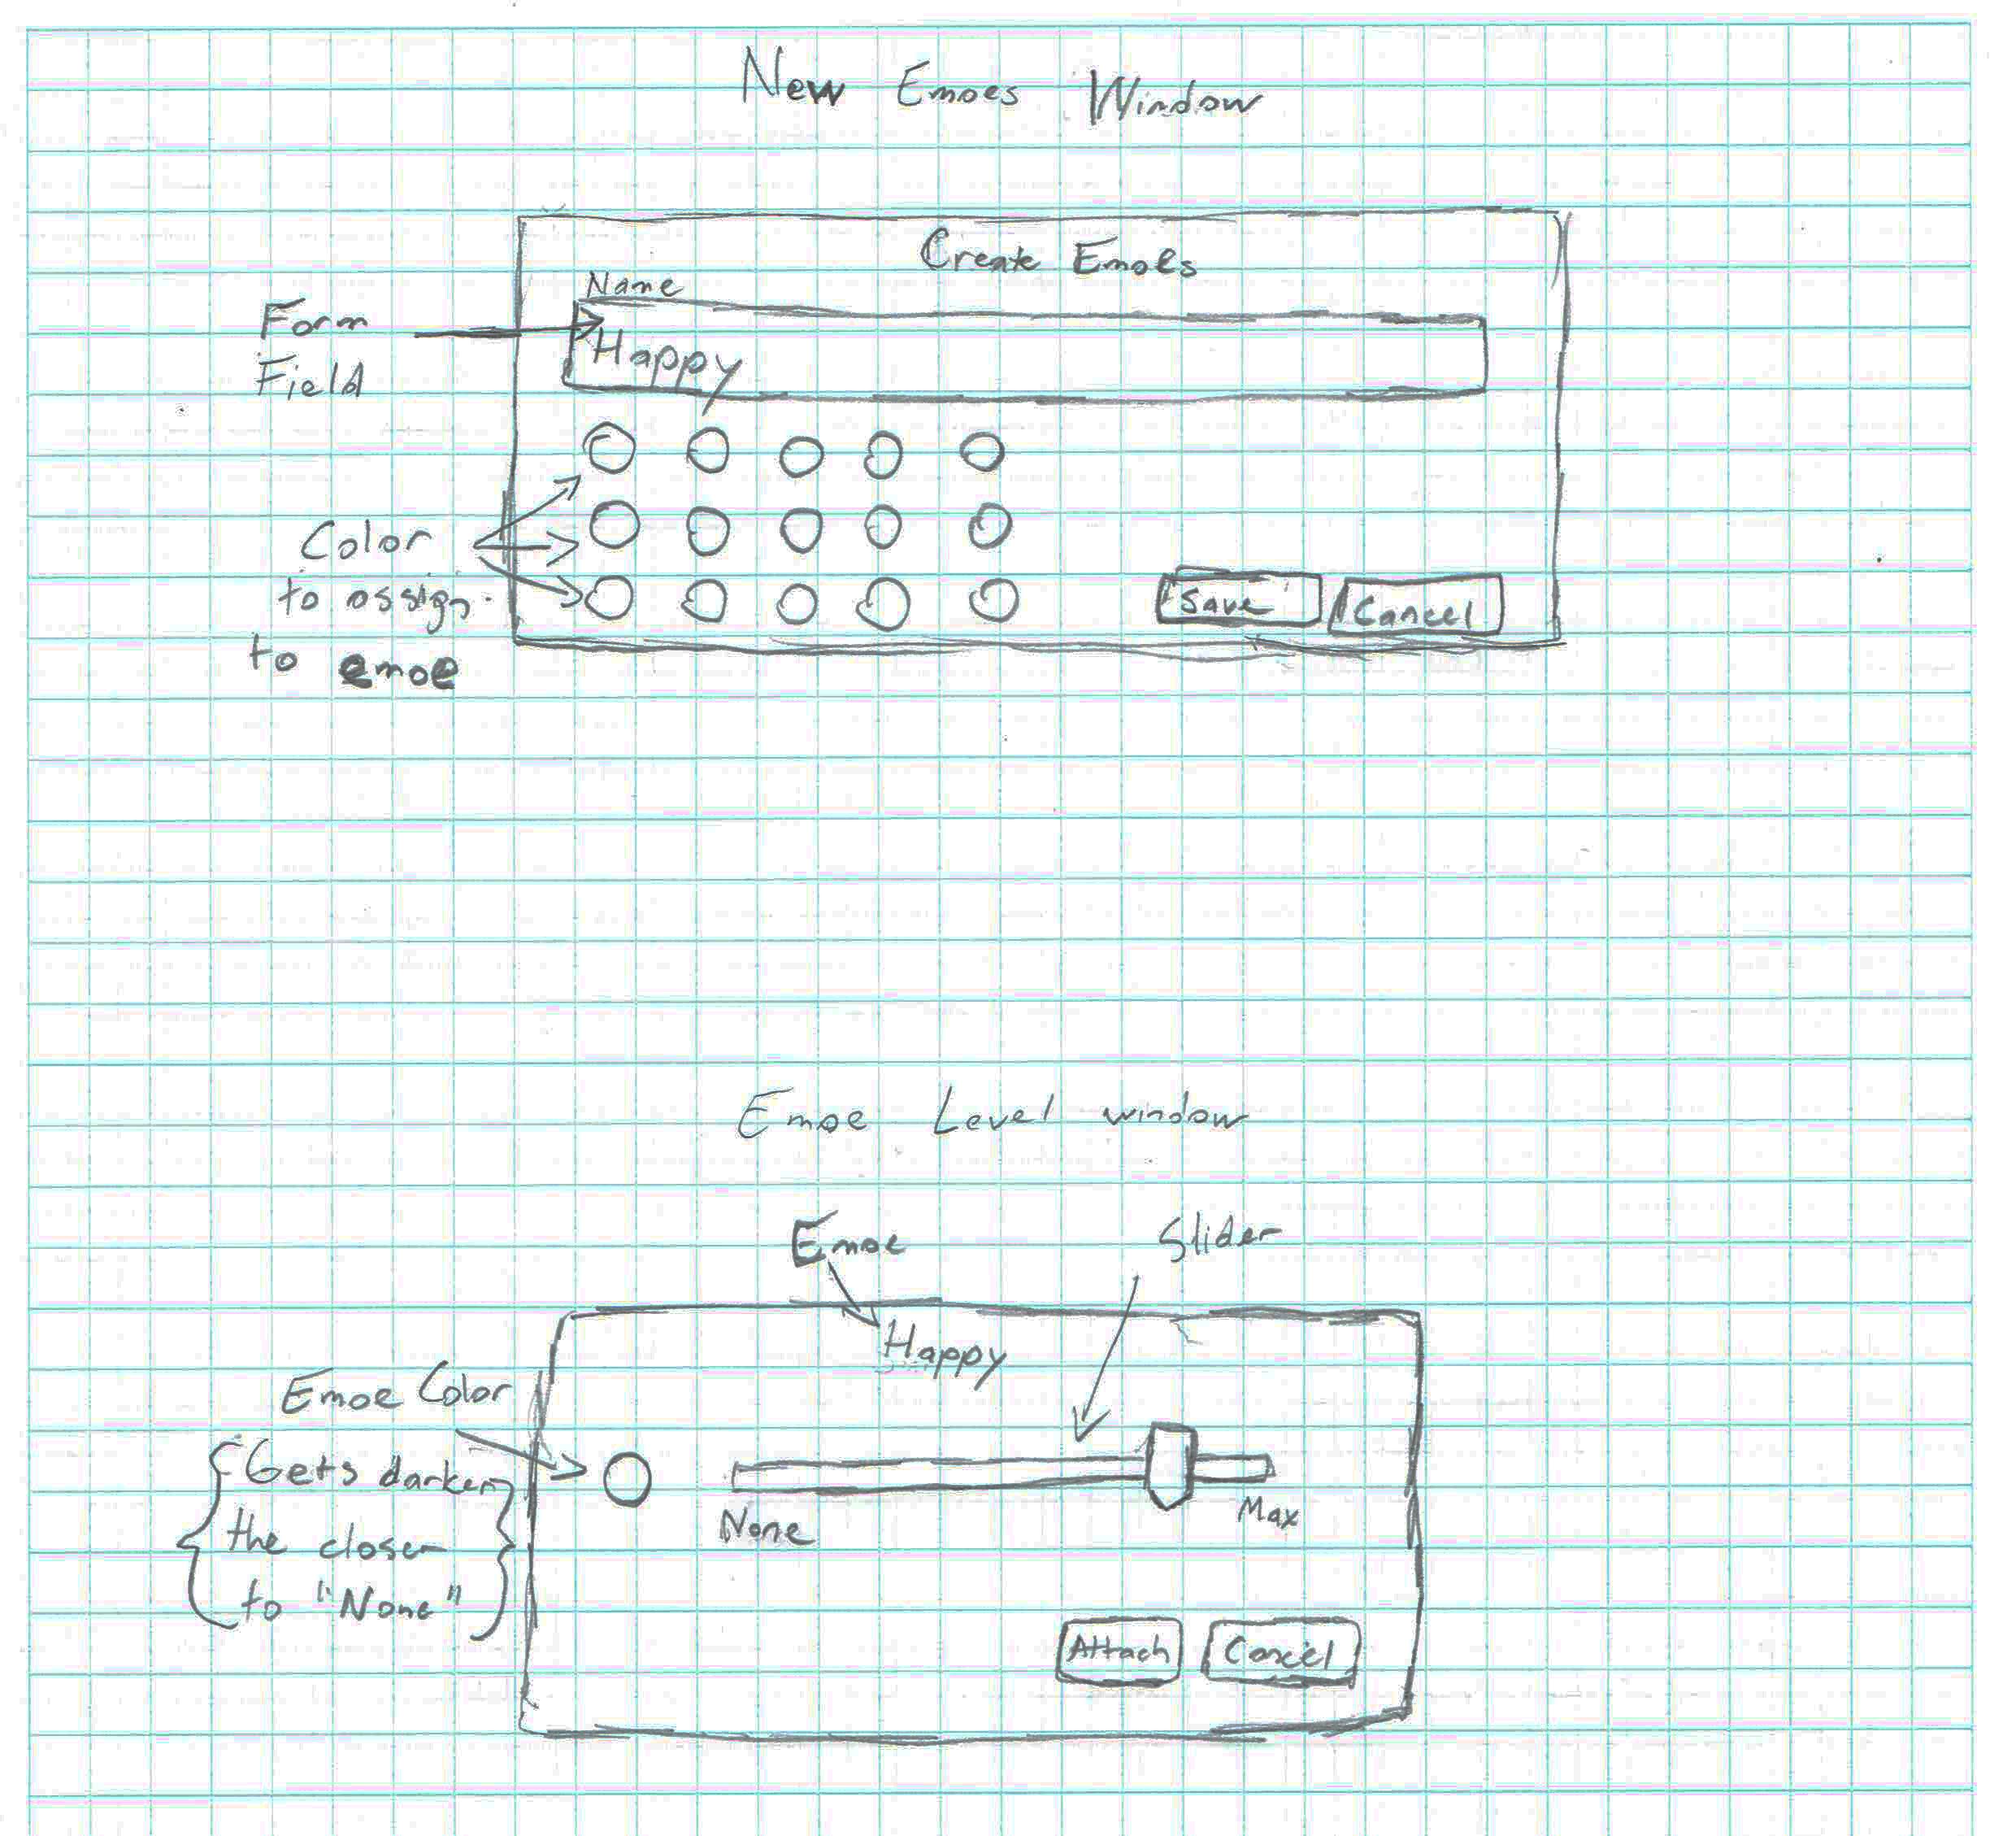 New Emoes Window
Create Emoes
Name
Form
Field
Happy
Color
to assign
to emoe
Save
Cancel
Emoe Level window
Emoe
Slider
Happy
Emoe Color
Gets darker
the closer
to "None"
None
Max
Attach
Cancel